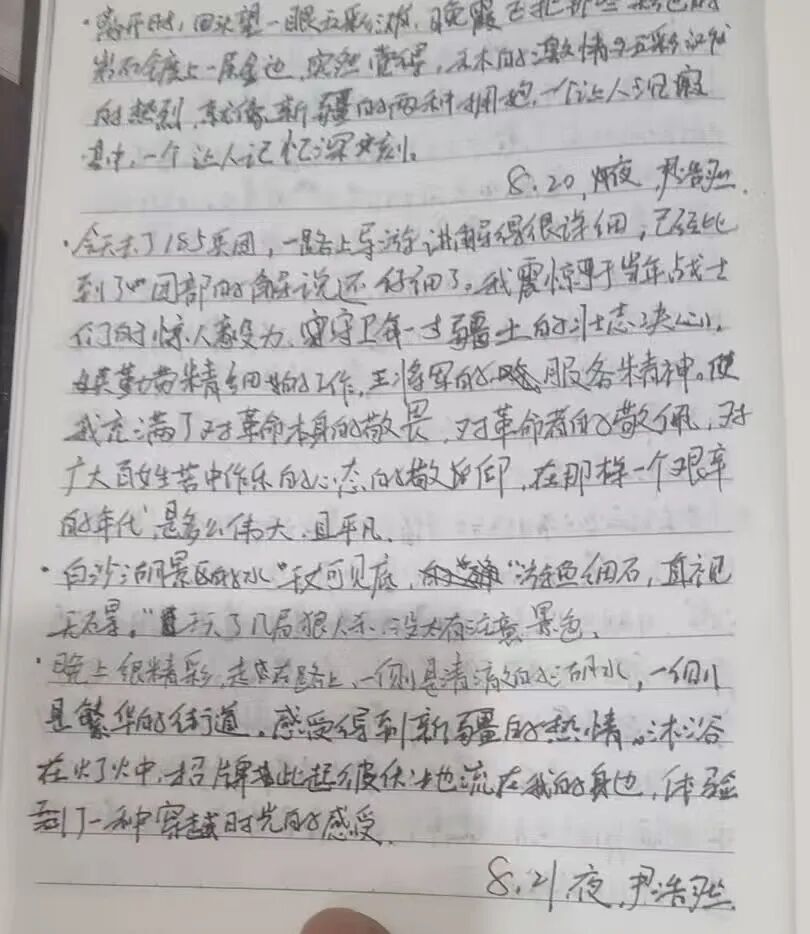 ·离开时,回头望一眼五彩滩,晚霞已把那些彩色的
岩石全度上一层金边,突然觉得,禾木的激情与五彩滩
的热烈,就像新疆的两种拥抱,一个让人沉寂
其中,一个让人记忆深刻。
8.20,夜,尹浩
·今天来了185兵团,一路上导游讲解得很详细,已经比
到了团部的解说还仔细了。我震惊于当年战士
们的惊人毅力,坚守卫每一寸疆土的壮志决心,
勤劳精细的工作,王将军的服务精神。使
我充满了对革命本身的敬畏,对革命者的敬佩,对
广大百姓苦中作乐的心态的敬仰,在那样一个艰辛
的年代,是多么伟大,且平凡。
·白沙湖景区的水"千丈可见底,游鱼细石,直视
无碍。"玩了几局狼人杀,没太有注意景色。
·晚上很精彩,走在路上,一侧是清澈的湖水,一侧
是繁华的街道,感受得到新疆的热情。沐浴
在灯火中,招牌此起彼伏地流在我的身边,体验
到了一种穿越时光的感受。
8.21,夜,尹浩